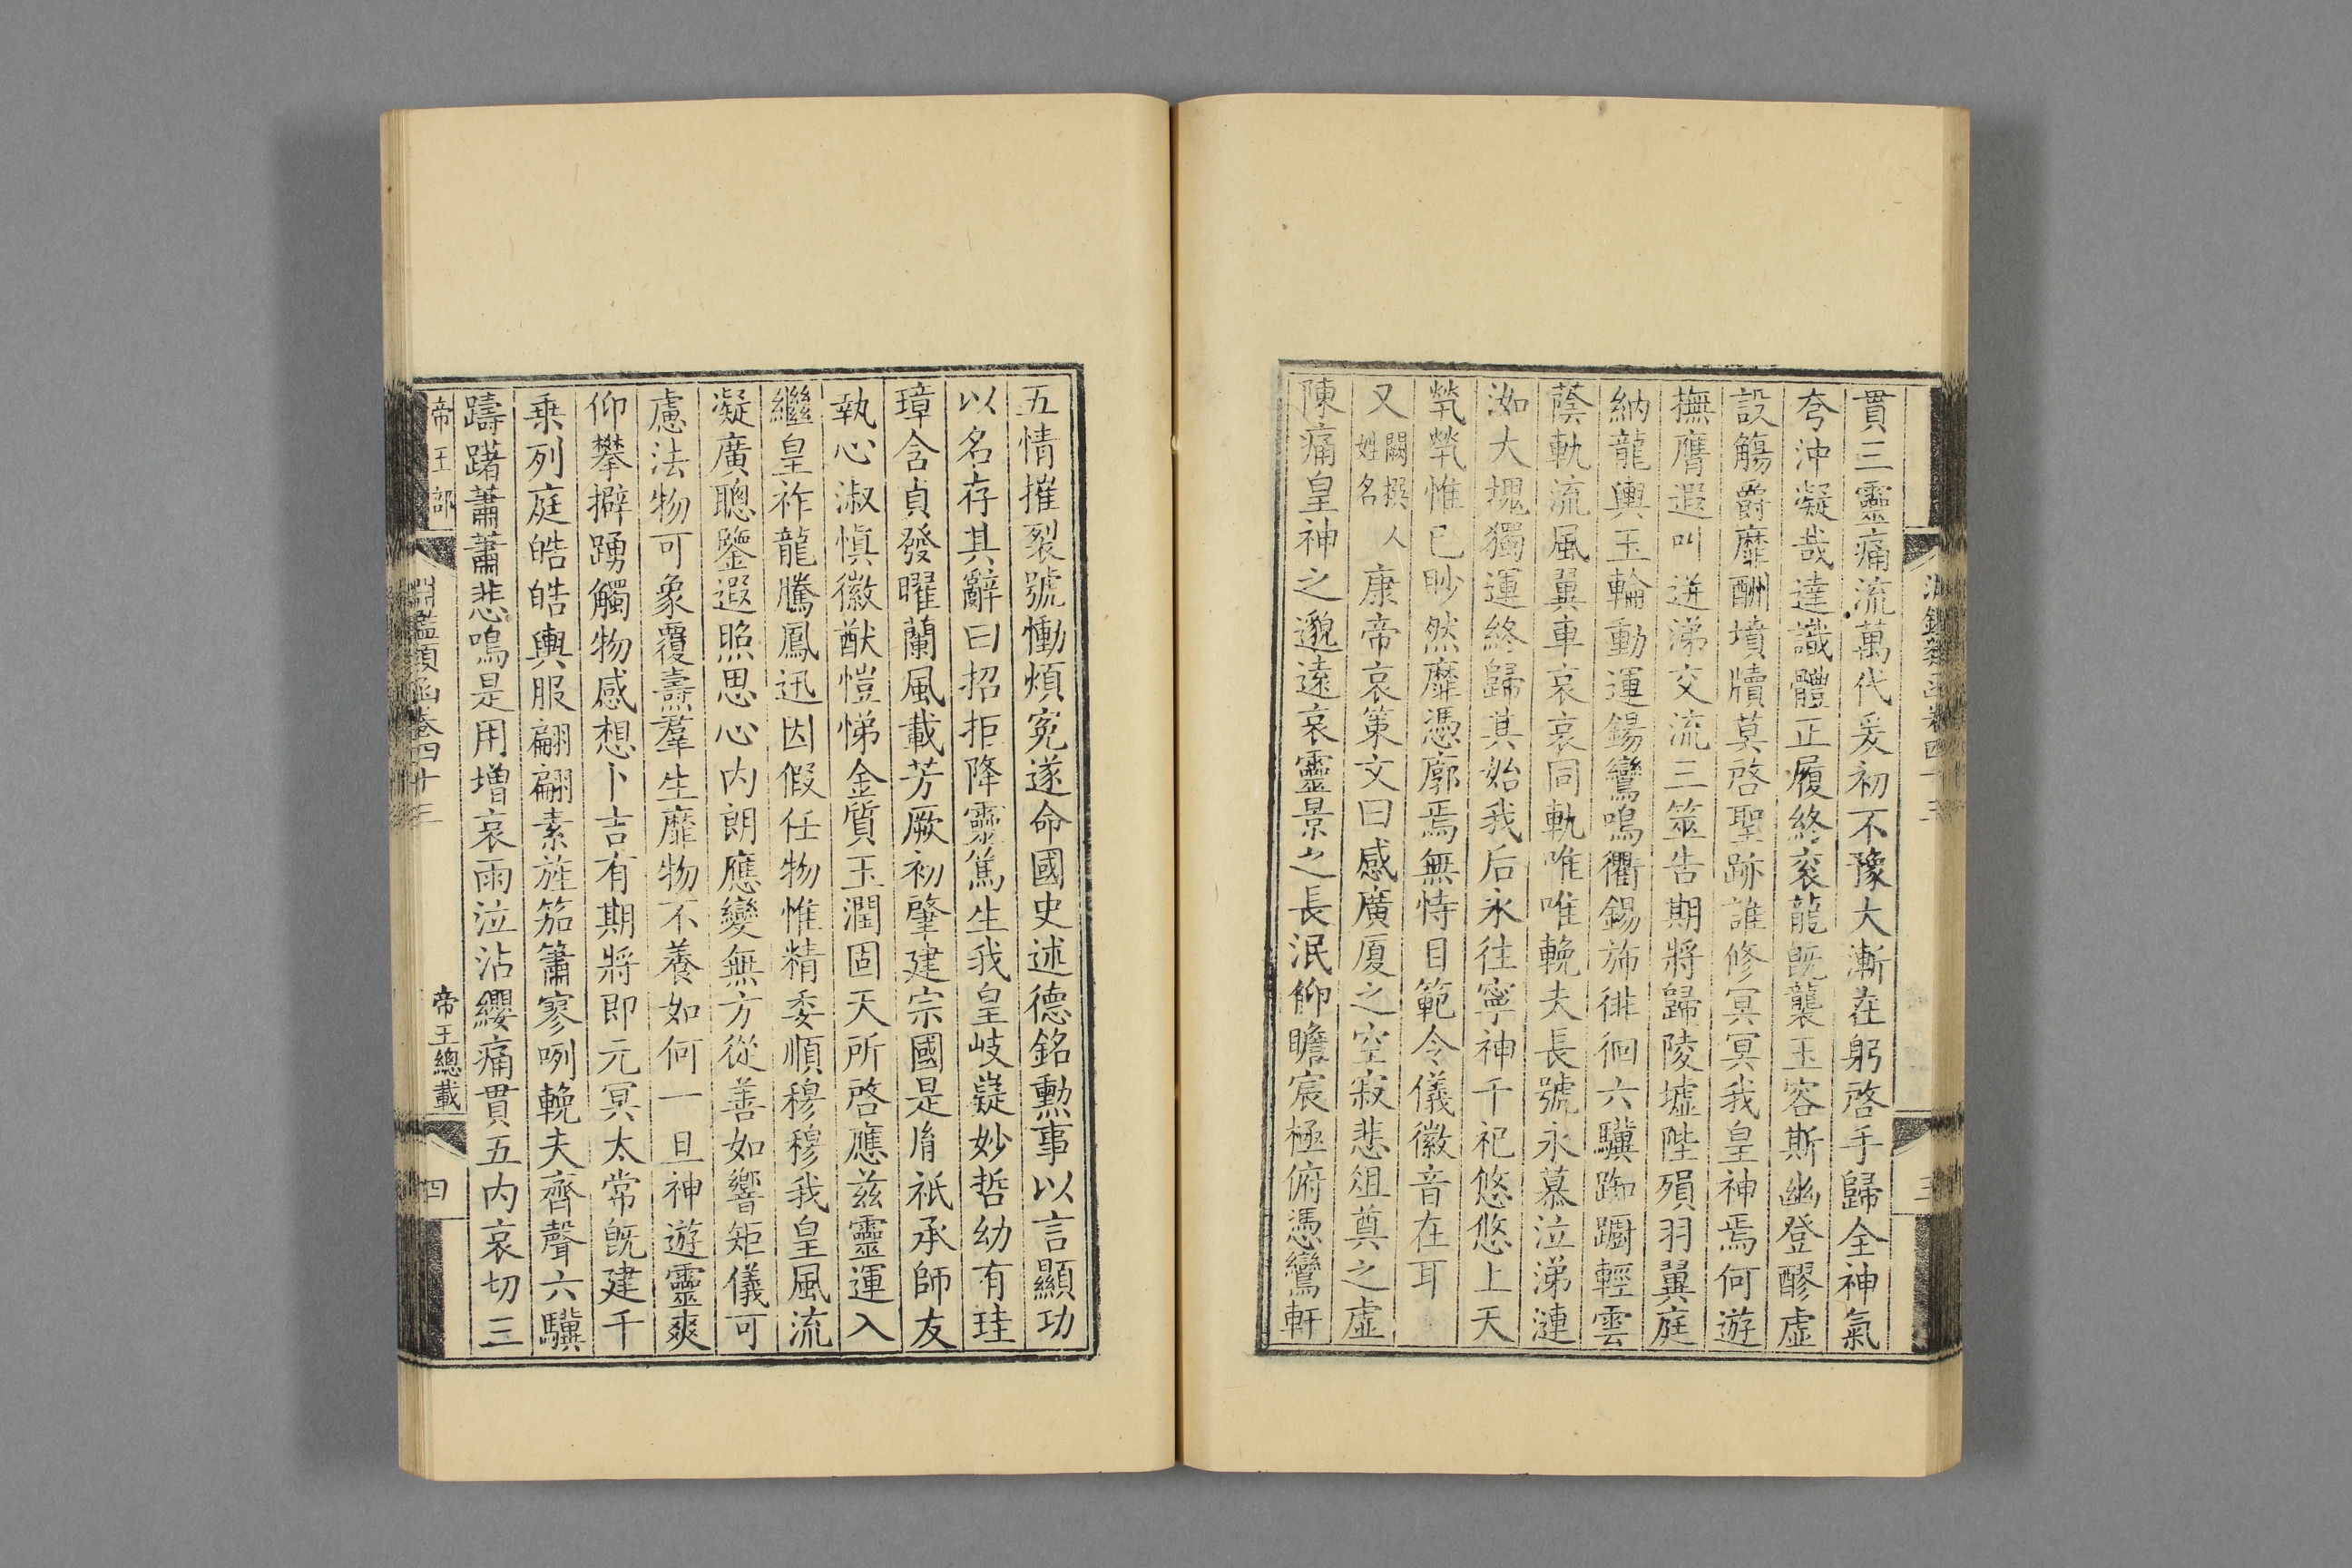 貫三靈痛流萬代爰初不豫大漸在躬啓手歸全神氣
夸沖凝哉達識體正履終衮龍旣襲玉容斯幽登醪虛
設觴爵靡酬墳牘莫啓聖跡誰修冥冥我皇神焉何遊
撫膺遐叫迸涕交流三筮告期將歸陵墟陛殞羽翼庭
納龍輿玉輪動運錫鸞鳴衢錫斾徘徊六驥踟躕輕雲
蔭軌流風翼車哀哀同軌唯唯輓夫長號永慕泣涕漣
洳大塊獨運終歸其始我后永往寧神千祀悠悠上天
煢煢惟已眇然靡憑廓焉無恃目範令儀徽音在耳
又闕撰人姓名康帝哀策文曰感廣厦之空寂悲俎奠之虛
陳痛皇神之邈遠哀靈景之長泯仰瞻宸極俯憑鸞軒
五情摧裂號慟煩冤遂命國史述德銘勲事以言顯功
以名存其辭曰招拒降靈篤生我皇岐嶷妙哲幼有珪
璋含貞發曜蘭風載芳厥初肇建宗國是胤祇承師友
執心淑愼徽猷愷悌金質玉潤固天所啓應兹靈運入
繼皇祚龍騰鳳迅因假任物惟精委順穆穆我皇風流
凝廣聰鑒遐照思心内朗應變無方從善如響矩儀可
慮法物可象覆燾羣生靡物不養如何一旦神遊靈爽
仰攀擗踴觸物感想卜吉有期將即元冥太常旣建千
乗列庭皓皓輿服翩翩素旌笳簫寥唳輓夫齊聲六驥
躊躇蕭蕭悲鳴是用增哀雨泣沾纓痛貫五内哀切三
帝王部
淵鑑類函卷四十三
帝王總載
四